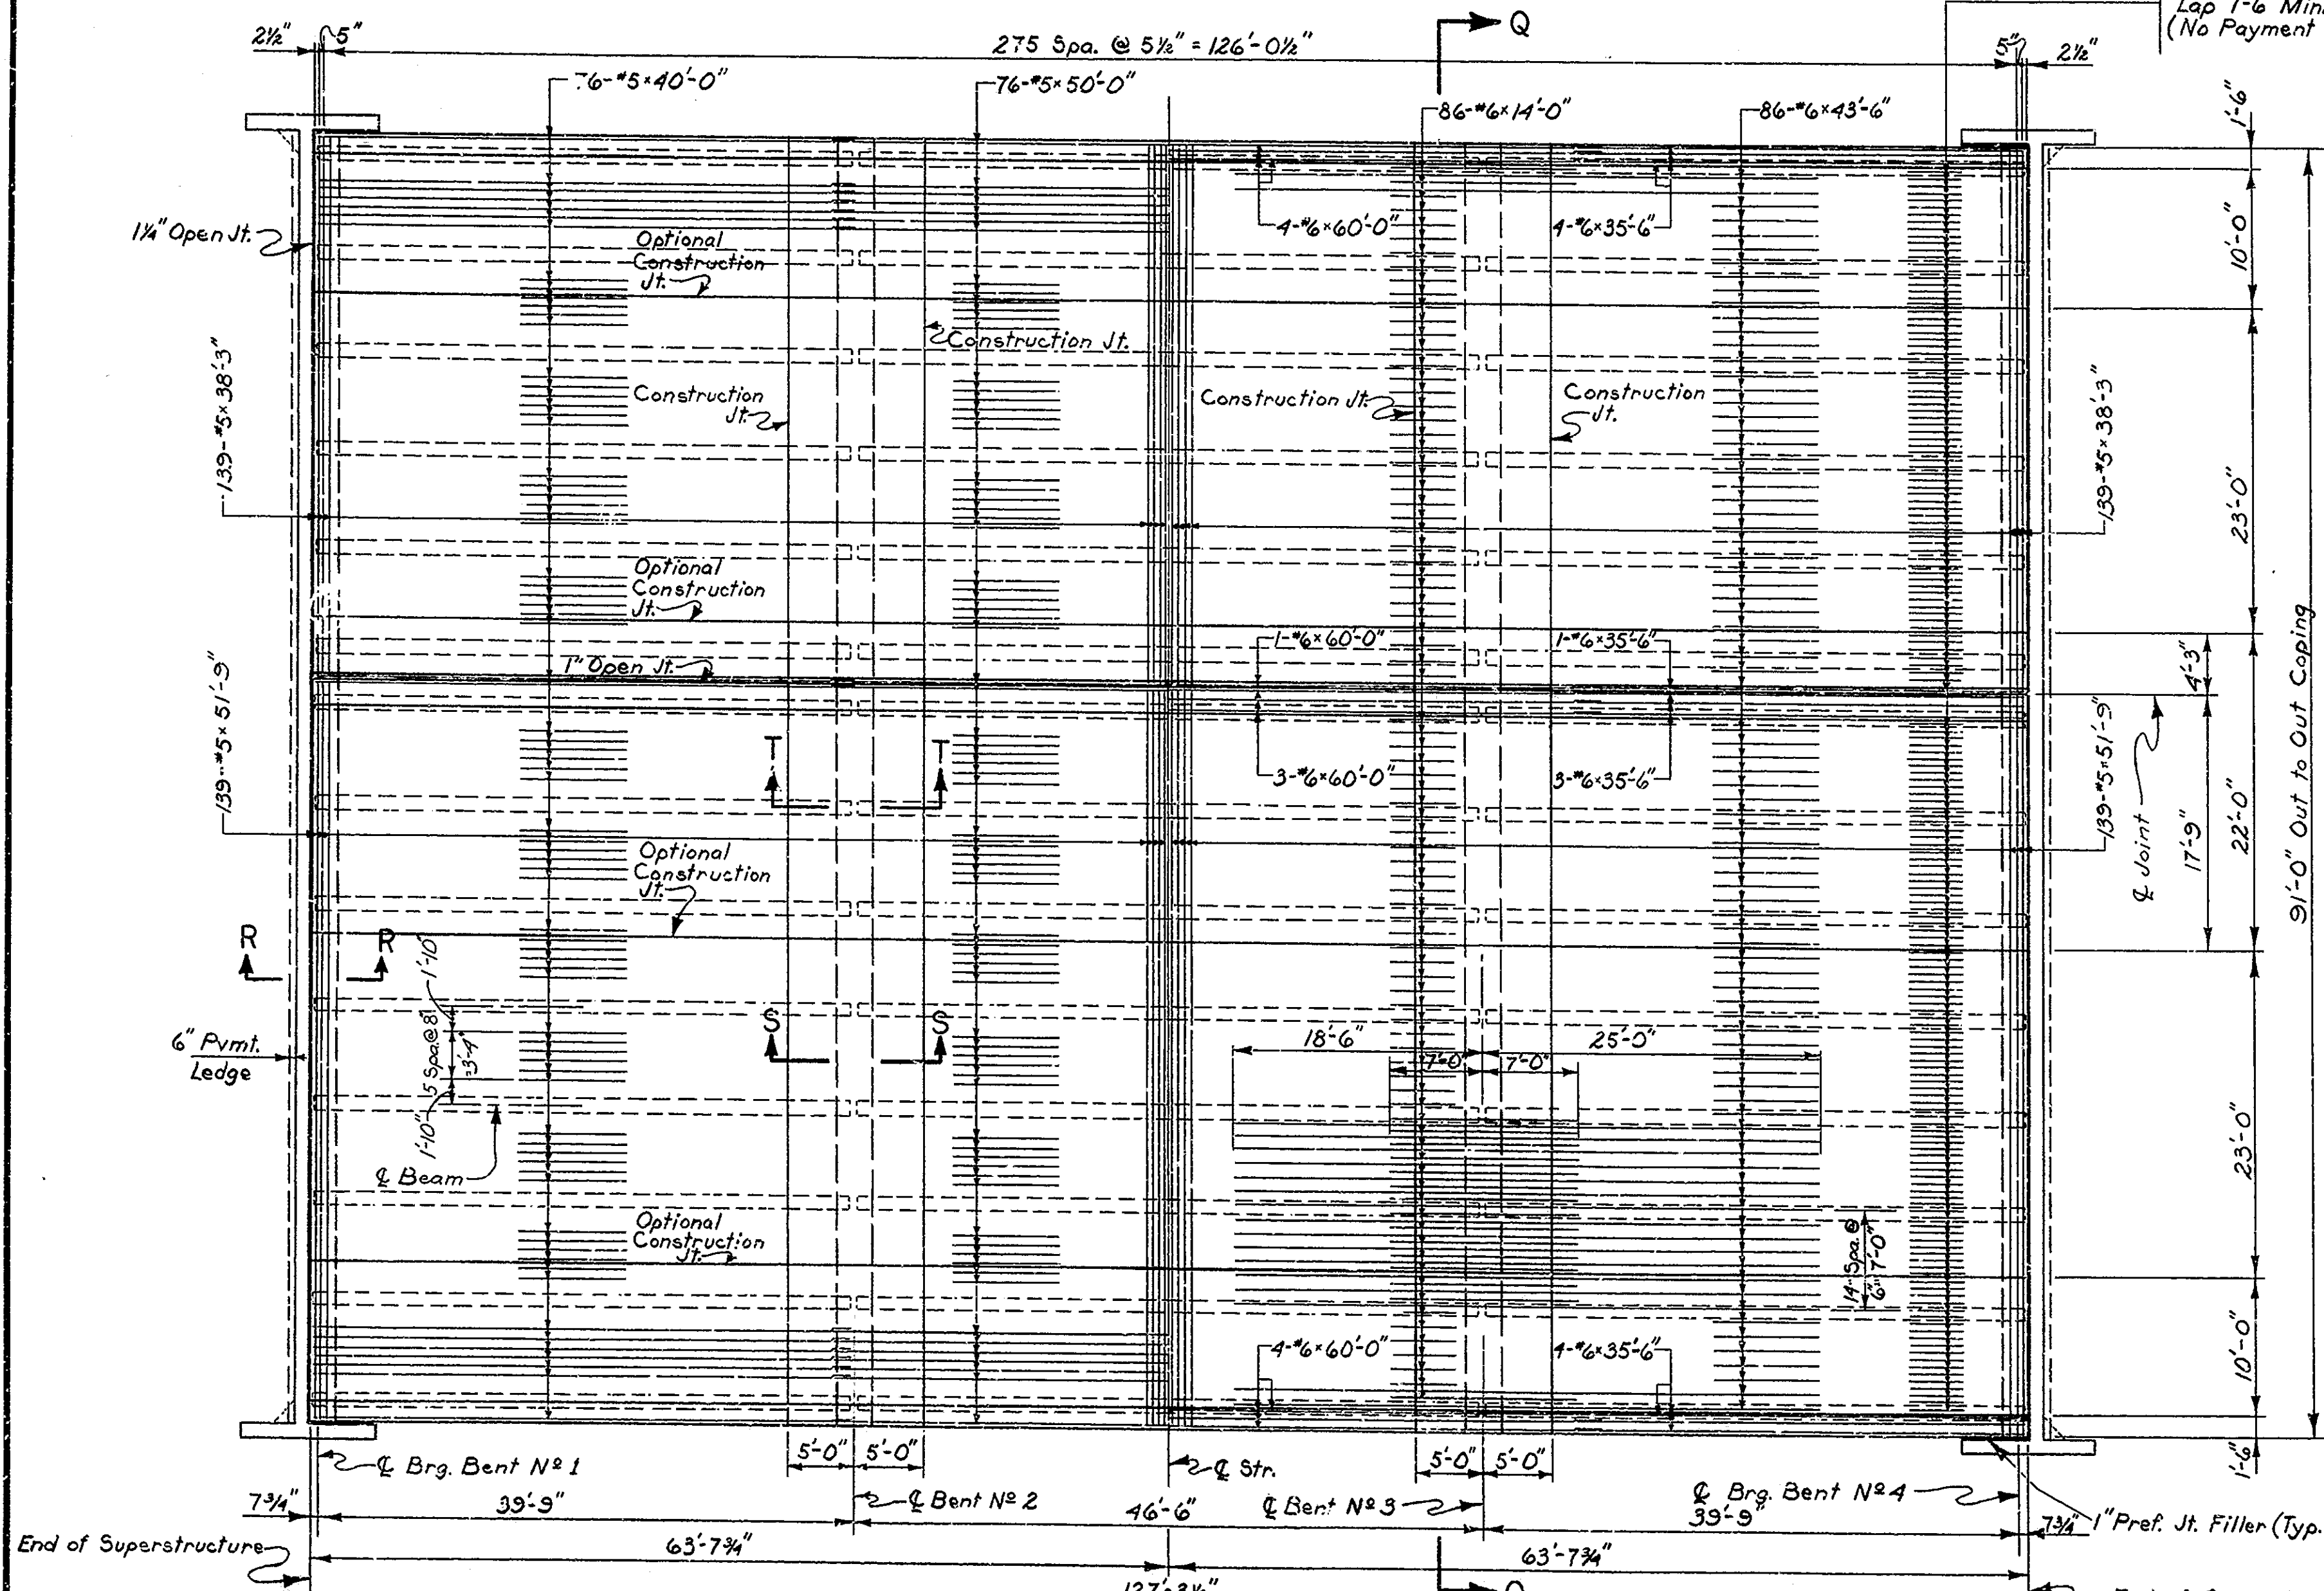 Lap 1'-6 Min.
(No Payment
Q
2½"
5"
275 Spa. @ 5½" = 126'-0½"
5"
2½"
76-#5×40'-0"
76-#5×50'-0"
86-#6×14'-0"
86-#6×43'-6"
1'-6"
1¼" Open Jt.
Optional
Construction
Jt.
4-#6×60'-0"
4-#6×35'-6"
10'-0"
Construction Jt.
Construction
Jt.
Construction Jt.
Construction
Jt.
139-#5×38'-3"
139-#5×38'-3"
23'-0"
Optional
Construction
Jt.
1" Open Jt.
1-#6×60'-0"
1-#6×35'-6"
4'-3"
91'-0" Out to Out Coping
139-#5×51'-9"
T
T
3-#6×60'-0"
3-#6×35'-6"
139-#5×51'-9"
℄ Joint
17'-9"
22'-0"
Optional
Construction
Jt.
R
R
1'-10"
5 Spa.@8"
=3'-4"
1'-10"
6" Pvmt.
Ledge
S
S
18'-6"
25'-0"
7'-0"
7'-0"
℄ Beam
23'-0"
Optional
Construction
Jt.
14 Spa.@
6" 7'-0"
4-#6×60'-0"
4-#6×35'-6"
10'-0"
1'-6"
5'-0"
5'-0"
5'-0"
5'-0"
℄ Brg. Bent Nº 1
℄ Str.
7¾"
39'-9"
℄ Bent Nº 2
46'-6"
℄ Bent Nº 3
℄ Brg. Bent Nº 4
39'-9"
7¾"
1" Pref. Jt. Filler (Typ.
End of Superstructure
63'-7¾"
63'-7¾"
127'-3½"
Q